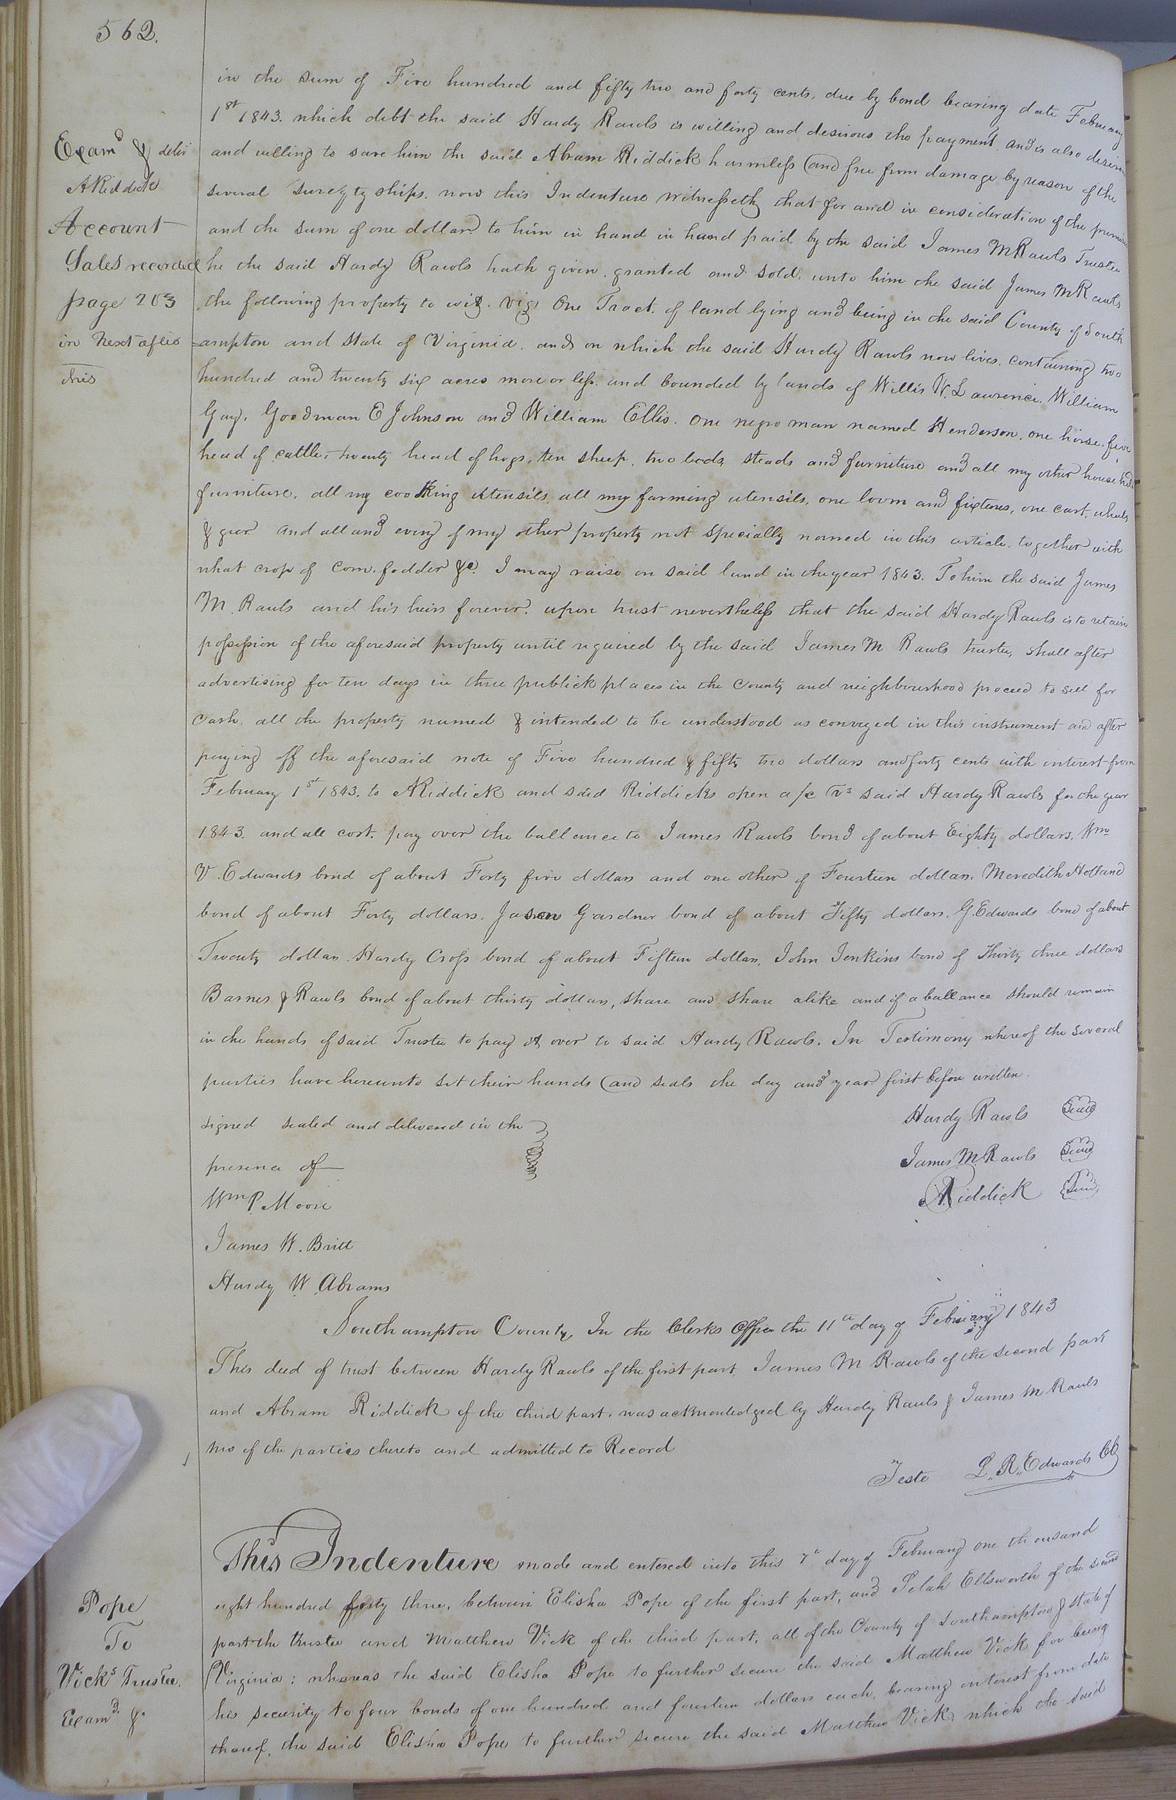 562.
in the sum of Five hundred and fifty two and forty cents, due by bond bearing date February
1st 1843. which debt the said Hardy Rawls is willing and desirous the payment, and is also desirous
and willing to save him the said Abram Riddick harmless and free from damage by reason of the
several suretyships. now this Indenture witnesseth that for and in consideration of the premises
and the sum of one dollar to him in hand in hand paid by the said James M Rawls Trustee
he the said Hardy Rawls hath given, granted and sold, unto him the said James M Rawls
the following property to wit. viz: One Tract of land lying and being in the said County of South
=ampton and State of Virginia. and on which the said Hardy Rawls now lives, containing two
hundred and twenty six acres more or less, and bounded by lands of Willis W. Lawrence, William
Gay, Goodman E Johnson and William Ellis. One negro man named Henderson, one horse, five
head of cattle, twenty head of hogs, ten sheep, two beds, steads and furniture and all my other household
furniture, all my cooking utensils all my farming utensils, one loom and fixtures, one cart, wheels
& gear and all and every of my other property not specially named in this article, together with
what crop of corn, fodder &c. I may raise on said land in the year 1843. To him the said James
M. Rawls and his heirs forever. upon trust nevertheless that the said Hardy Rawls is to retain
possession of the aforesaid property until required by the said James M Rawls trustee, shall after
advertising for ten days in three publick places in the County and neighbourhood proceed to sell for
Cash, all the property named & intended to be understood as conveyed in this instrument and after
paying off the aforesaid note of Five hundred & fifty two dollars and forty cents with interest from
February 1st 1843. to A Riddick and said Riddicks open a/c vs said Hardy Rawls for the year
1843. and all cost, pay over the ballance to James Rawls bond of about Eighty dollars, Wm
V. Edwards bond of about Forty five dollars and one other of Fourteen dollars. Meredith Holland
bond of about Forty dollars. Jason Gardner bond of about Fifty dollars. G. Edwards bond of about
Twenty dollars Hardy Cross bond of about Fifteen dollars, John Jenkins bond of Thirty three dollars
Barnes & Rawls bond of about thirty dollars, share and share alike and if a ballance should remain
in the hands of said Trustee to pay it over to said Hardy Rawls. In Testimony whereof the several
parties have hereunto set their hands and seals the day and year first before written.
signed sealed and delivered in the
presence of
Wm P. Moore
James W. Britt
Hardy W Abrams
Hardy Rawls Seal
James M Rawls Seal
A Riddick Seal
Southampton County, In the Clerks Office the 11th day of February 1843
This deed of trust between Hardy Rawls of the first part, James M Rawls of the second part
and Abram Riddick of the third part. was acknowledged by Hardy Rawls & James M Rawls
two of the parties thereto and admitted to Record
Teste L. R. Edwards CC
This Indenture made and entered into this 7th day of February one thousand
eight hundred forty three, between Elisha Pope of the first part, and Selah Ellsworth of the second
part the trustee and Matthew Vick of the third part, all of the County of Southampton & State of
Virginia: whereas the said Elisha Pope to further secure the said Matthew Vick for being
his security to four bonds of one hundred and fourteen dollars each, bearing interest from date
thereof, the said Elisha Pope to further secure the said Matthew Vick which the said
Examd & deliv
A Riddick
Account
Sales recorded
page 203
in Next after
this
Pope
To
Vicks Trustee.
Examd. &.